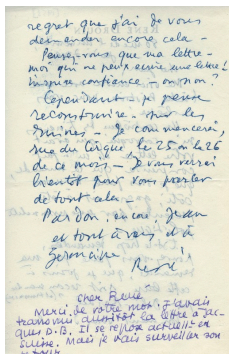 regret que j'ai de vous
demander encore cela -
Pensez-vous que ma lettre -
moi qui ne peux écrire une lettre !
inspire confiance - ou non ?
Cependant je peux
reconstruire - sur les
ruines - Je commencerai
le 25 ou le 26
de ce mois - Je vous verrai
bientôt pour vous parler
de tout cela -
Pardon, encore, Jean
et tout à vous et à
Germaine
René
cher René
Merci de votre mot. J'avais
transmis aussitôt la lettre à Jac-
ques D.B. Il se repose actuellt en
Suisse. Mais je vais surveiller son